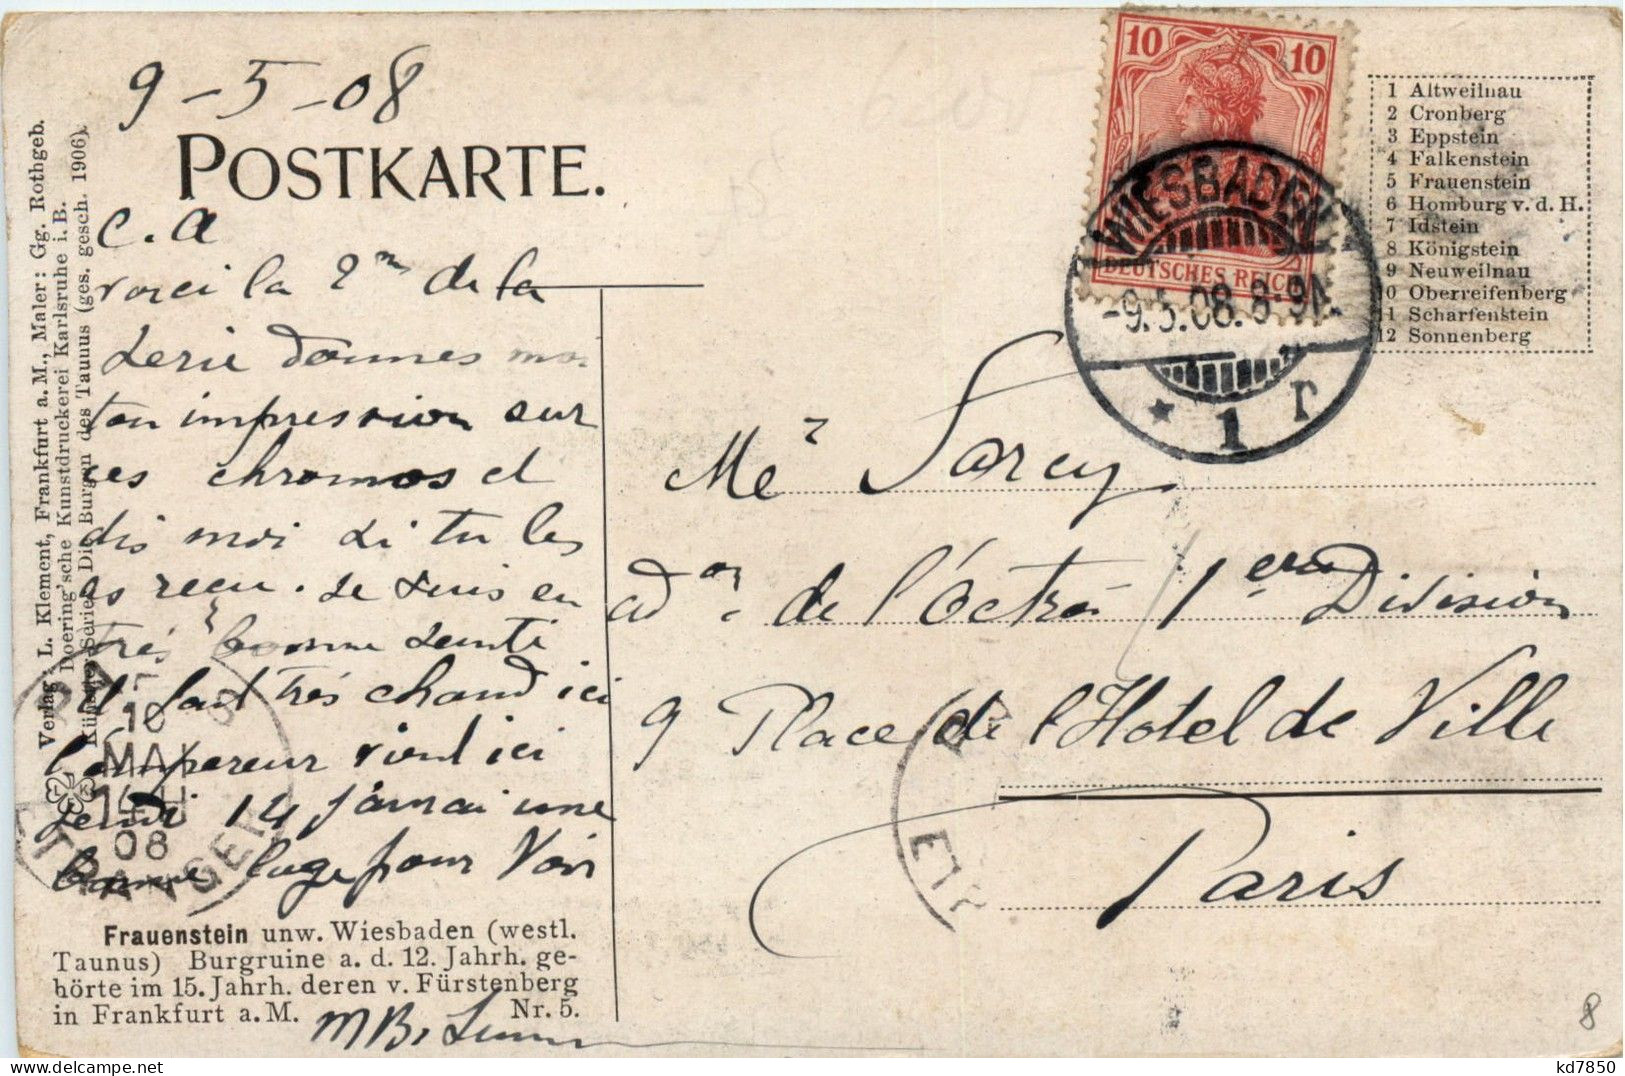 9-5-08
POSTKARTE.
Verlag: L. Klement, Frankfurt a. M., Maler: Gg. Rothgeb.
Doering'sche Kunstdruckerei Karlsruhe i. B.
Künstler-Serie: Die Burgen des Taunus (ges. gesch. 1906).
C. A
voici la 2me de la
Serie donnes moi
ton impression sur
ces chromos et
dis moi si tu les
as recu. Je suis en
très bonne senté
il fait très chaud ici
l'empereur vient ici
Jeudi 14 j'aurai une
bonne loge pour Voir
Frauenstein unw. Wiesbaden (westl.
Taunus) Burgruine a. d. 12. Jahrh. ge-
hörte im 15. Jahrh. deren v. Fürstenberg
in Frankfurt a. M. Nr. 5.
10
MAI
08
ETRANGER
10 10
DEUTSCHES REICH
WIESBADEN
-9.5.08.8-9V.
* 1 r
1 Altweilnau
2 Cronberg
3 Eppstein
4 Falkenstein
5 Frauenstein
6 Homburg v. d. H.
7 Idstein
8 Königstein
9 Neuweilnau
10 Oberreifenberg
11 Scharfenstein
12 Sonnenberg
de l'Octroi 1ere Division
9 Place de l'Hotel de Ville
Paris
8
kd7850